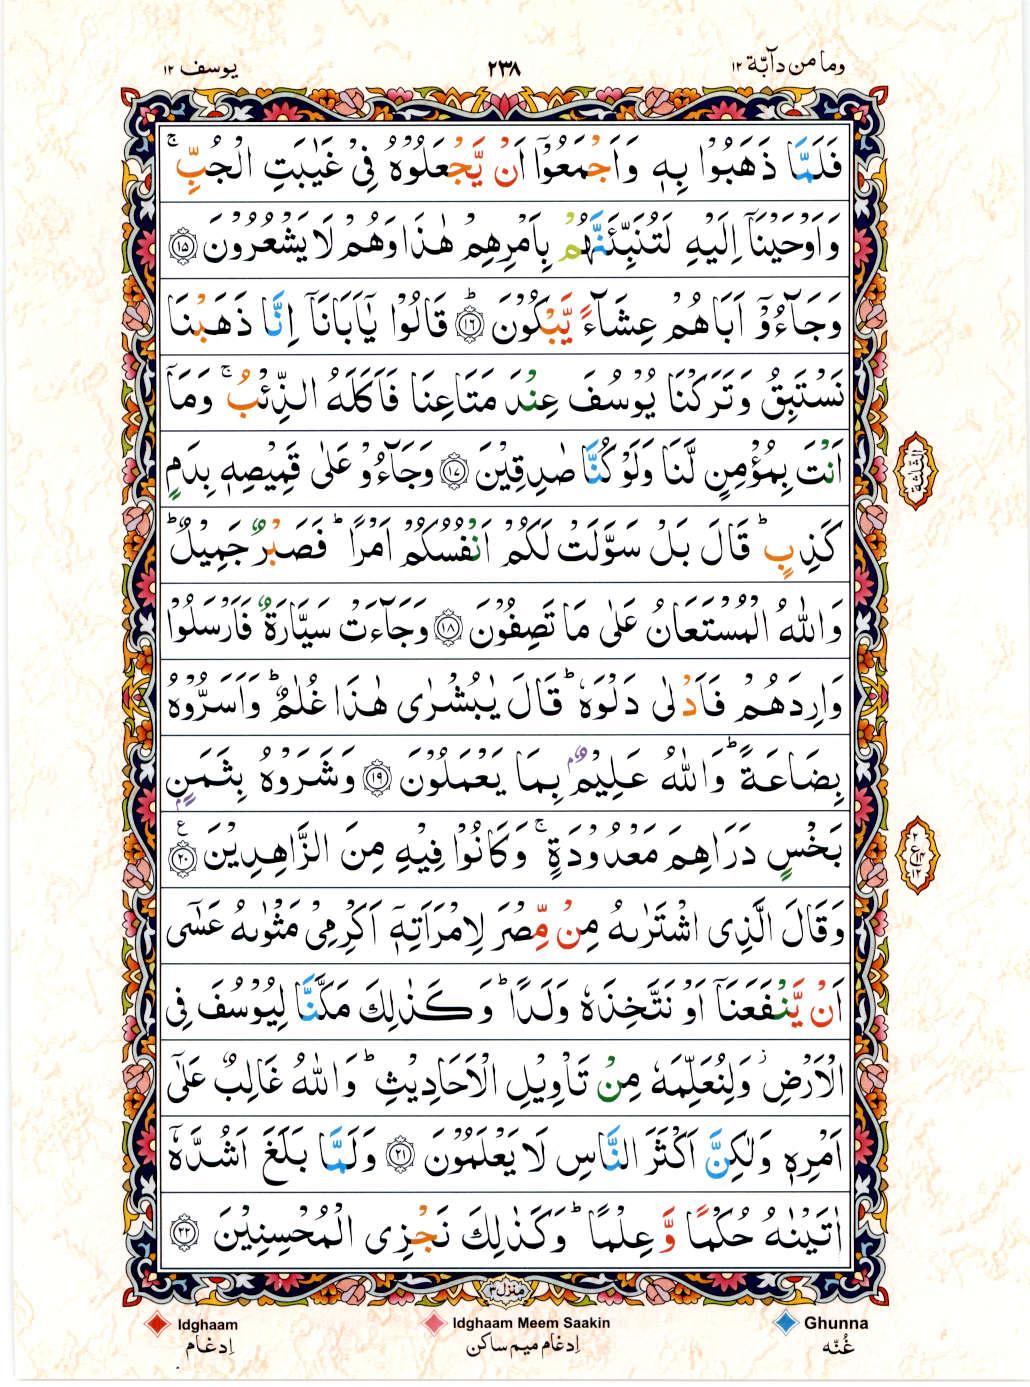 وما من دآبّة ١٢
٢٣٨
یوسف ١٢
فَلَمَّا ذَهَبُوۡا بِهٖ وَاَجۡمَعُوۡۤا اَنۡ يَّجۡعَلُوۡهُ فِىۡ غَيٰبَتِ الۡجُبِّ‌ۚ
وَاَوۡحَيۡنَاۤ اِلَيۡهِ لَـتُنَـبِّئَـنَّهُمۡ بِاَمۡرِهِمۡ هٰذَا وَهُمۡ لَا يَشۡعُرُوۡنَ‏ ﴿۱۵﴾
وَجَآءُوۡۤ اَبَاهُمۡ عِشَآءً يَّبۡكُوۡنَؕ‏ ﴿۱۶﴾ قَالُوۡا يٰۤاَبَانَاۤ اِنَّا ذَهَبۡنَا
نَسۡتَبِقُ وَتَرَكۡنَا يُوۡسُفَ عِنۡدَ مَتَاعِنَا فَاَكَلَهُ الذِّئۡبُ‌ۚ وَمَاۤ
اَنۡتَ بِمُؤۡمِنٍ لَّنَا وَلَوۡ كُنَّا صٰدِقِيۡنَ‏ ﴿۱۷﴾ وَجَآءُوۡ عَلٰى قَمِيۡصِهٖ بِدَمٍ
كَذِبٍ‌ؕ قَالَ بَلۡ سَوَّلَتۡ لَـكُمۡ اَنۡفُسُكُمۡ اَمۡرًا‌ؕ فَصَبۡرٌ جَمِيۡلٌ‌ؕ
وَاللّٰهُ الۡمُسۡتَعَانُ عَلٰى مَا تَصِفُوۡنَ‏ ﴿۱۸﴾ وَجَآءَتۡ سَيَّارَةٌ فَاَرۡسَلُوۡا
وَارِدَهُمۡ فَاَدۡلٰى دَلۡوَهٗ‌ؕ قَالَ يٰبُشۡرٰى هٰذَا غُلٰمٌ‌ؕ وَاَسَرُّوۡهُ
بِضَاعَةً‌ؕ وَاللّٰهُ عَلِيۡمٌۢ بِمَا يَعۡمَلُوۡنَ‏ ﴿۱۹﴾ وَشَرَوۡهُ بِثَمَنٍۢ
بَخۡسٍ دَرَاهِمَ مَعۡدُوۡدَةٍ‌ۚ وَكَانُوۡا فِيۡهِ مِنَ الزَّاهِدِيۡنَ‏ ﴿۲۰﴾ ع
وَقَالَ الَّذِى اشۡتَرٰٮهُ مِنۡ مِّصۡرَ لِامۡرَاَتِهٖۤ اَكۡرِمِىۡ مَثۡوٰٮهُ عَسٰٓى
اَنۡ يَّنۡفَعَنَاۤ اَوۡ نَـتَّخِذَهٗ وَلَدًا‌ؕ وَكَذٰلِكَ مَكَّنَّا لِيُوۡسُفَ فِى
الۡاَرۡضِ وَلِنُعَلِّمَهٗ مِنۡ تَاۡوِيۡلِ الۡاَحَادِيۡثِ‌ؕ وَاللّٰهُ غَالِبٌ عَلٰٓى
اَمۡرِهٖ وَلٰـكِنَّ اَكۡثَرَ النَّاسِ لَا يَعۡلَمُوۡنَ‏ ﴿۲۱﴾ وَلَمَّا بَلَغَ اَشُدَّهٗۤ
اٰتَيۡنٰهُ حُكۡمًا وَّعِلۡمًا‌ؕ وَكَذٰلِكَ نَجۡزِى الۡمُحۡسِنِيۡنَ‏ ﴿۲۲﴾
الثلثة
ع
٢
١٢
منزل ٣
Ghunna
غُنّه
Idghaam Meem Saakin
اِدغام میم ساکن
Idghaam
اِدغام